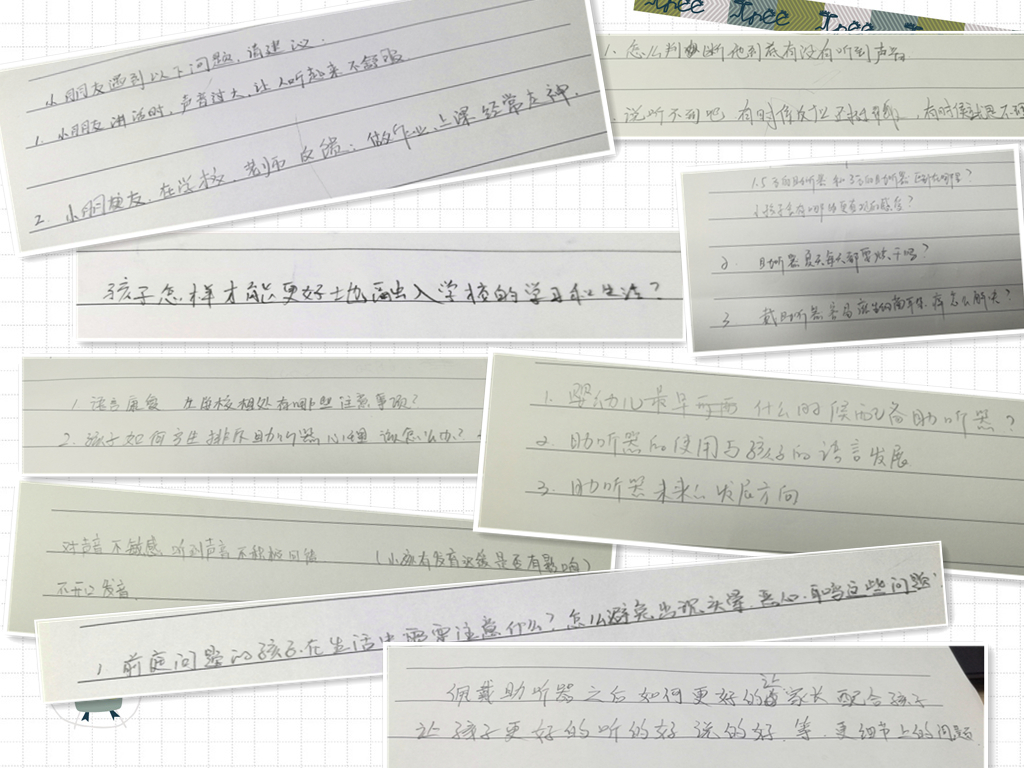 Tree Tree Tree Tree
小朋友遇到以下问题,请建议:
1. 小朋友讲话时,声音过大,让人听起来不舒服.
2. 小朋友,在学校,老师反馈:做作业、上课经常走神.
1. 怎么判断他到底有没有听到声音
说听不到吧 有时候反应
孩子怎样才能更好地融入学校的学习和生活?
2. 助听器是不是每天都要烘干吗?
3. 戴助听器容易
怎么解决?
1. 语言康复 生活 相处有哪些注意事项?
2. 孩子如何产生排斥助听器心理 该怎么办?
1. 婴幼儿最早 什么时候配备助听器?
2. 助听器的使用与孩子的语言发展
3. 助听器未来 发展方向
对声音不敏感 听到声音不
不开口发音
(小孩有发育迟缓是否有影响)
1. 前庭问题的孩子在生活中需要注意什么?怎么避免出现头晕、恶心、耳鸣这些问题
佩戴助听器之后如何更好的让家长配合孩子
让孩子更好的听的好 说的好,等,更细节上的问题